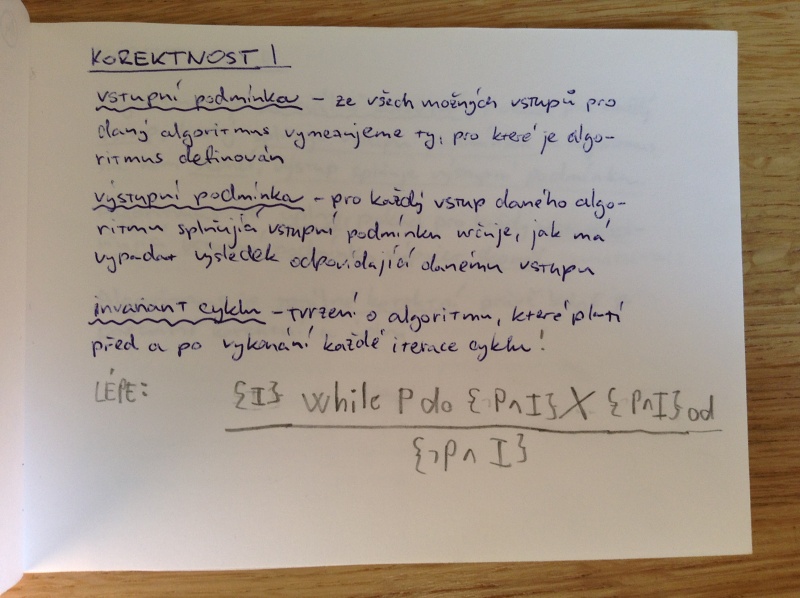 KOREKTNOST I
vstupní podmínka – ze všech možných vstupů pro
daný algoritmus vymezujeme ty, pro které je algo-
ritmus definován
výstupní podmínka – pro každý vstup daného algo-
ritmu splňující vstupní podmínku určuje, jak má
vypadat výsledek odpovídající danému vstupu
invariant cyklu – tvrzení o algoritmu, které platí
před a po vykonání každé iterace cyklu!
LÉPE:
{I} while P do {¬P∧I} X {P∧I} od
{¬P∧I}